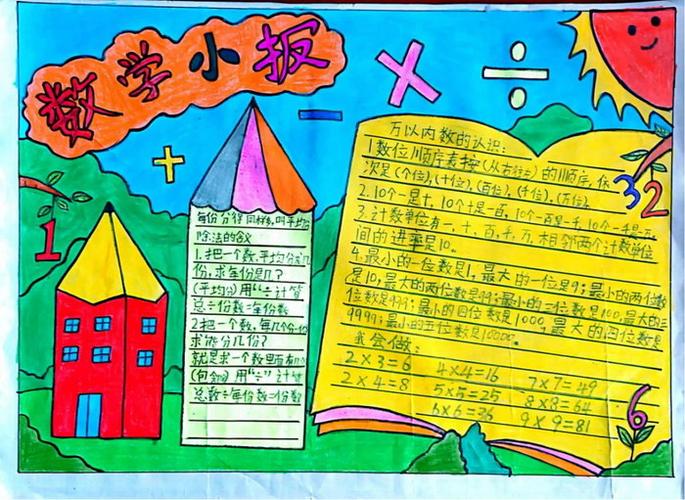 数学小报
+
−
×
÷
1
每份分得同样多,叫平均分
除法的含义
1.把一个数,平均分成几
份,求每份是几?
(平均分)用“÷”计算
总÷份数=每份数
2.把一个数,每几个一份
求能分几份?
就是求一个数里面有几个
(包含)用“÷”计算
总数÷每份数=份数
万以内数的认识:
1.数位顺序表按(从右往左)的顺序,依
次是(个位),(十位),(百位),(千位),(万位)。
2.10个一是十,10个十是一百,10个一百是一千,10个一千是一万。
3.计数单位有一,十,百,千,万,相邻两个计数单位
间的进率是10。
4.最小的一位数是1,最大的一位是9;最小的两位数
是10,最大的两位数是99;最小的三位数是100,最大的三
位数是999;最小的四位数是1000,最大的四位数是
9999;最小的五位数是10000。
我会做:
2×3=6 4×4=16 7×7=49
2×4=8 5×5=25 8×8=64
6×6=36 9×9=81
3
2
6